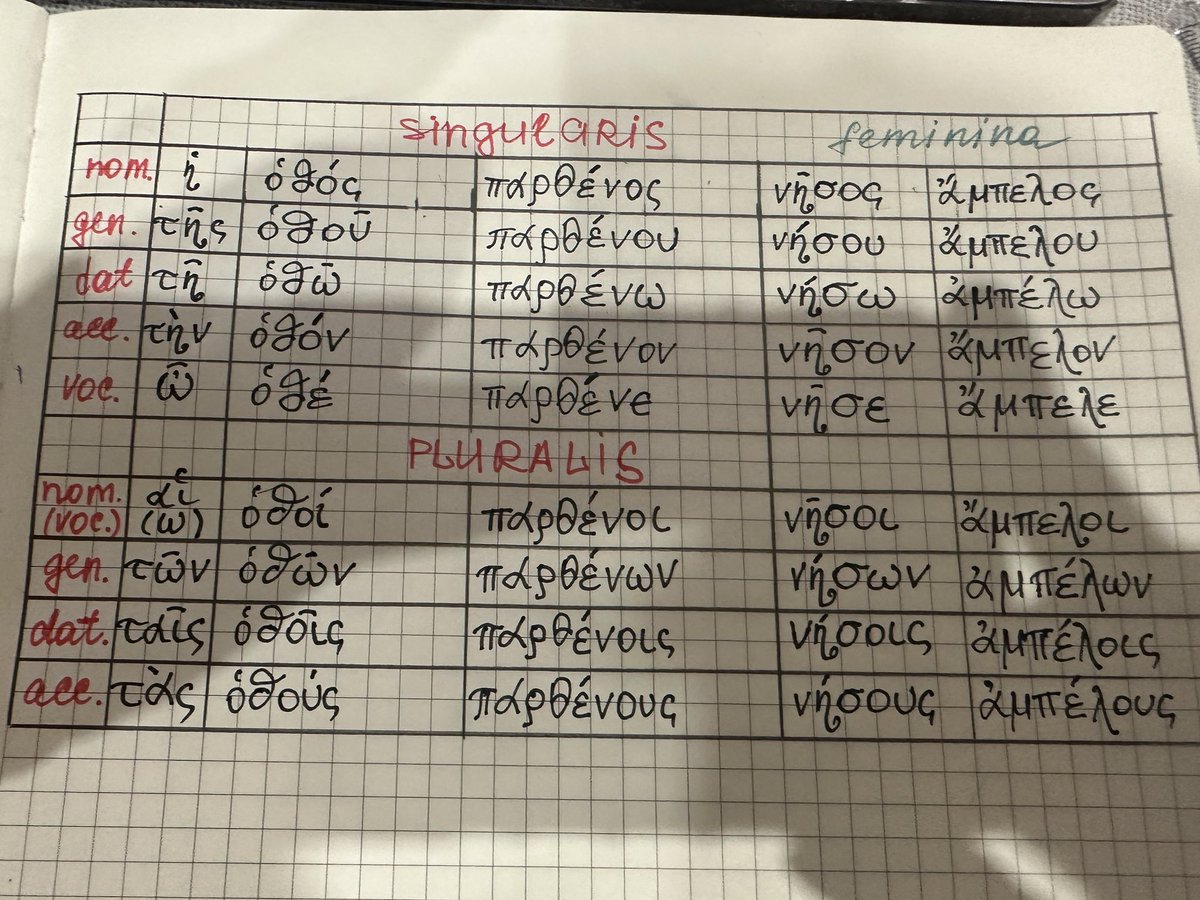 singularis feminina
nom. ἡ ὁδός παρθένος νῆσος ἄμπελος
gen. τῆς ὁδοῦ παρθένου νήσου ἄμπελου
dat τῆ ὁδῶ παρθένω νήσω ἀμπέλω
acc. τὴν ὁδόν παρθένον νῆσον ἄμπελον
voc. ὦ ὁδέ παρθένε νῆσε ἄμπελε
PLURALIS
nom. αἱ ὁδοί παρθένοι νῆσοι ἄμπελοι
(voc.) (ω)
gen. τῶν ὁδῶν παρθένων νήσων ἀμπέλων
dat. ταῖς ὁδοῖς παρθένοις νήσοις ἀμπέλοις
acc. τὰς ὁδούς παρθένους νήσους ἀμπέλους